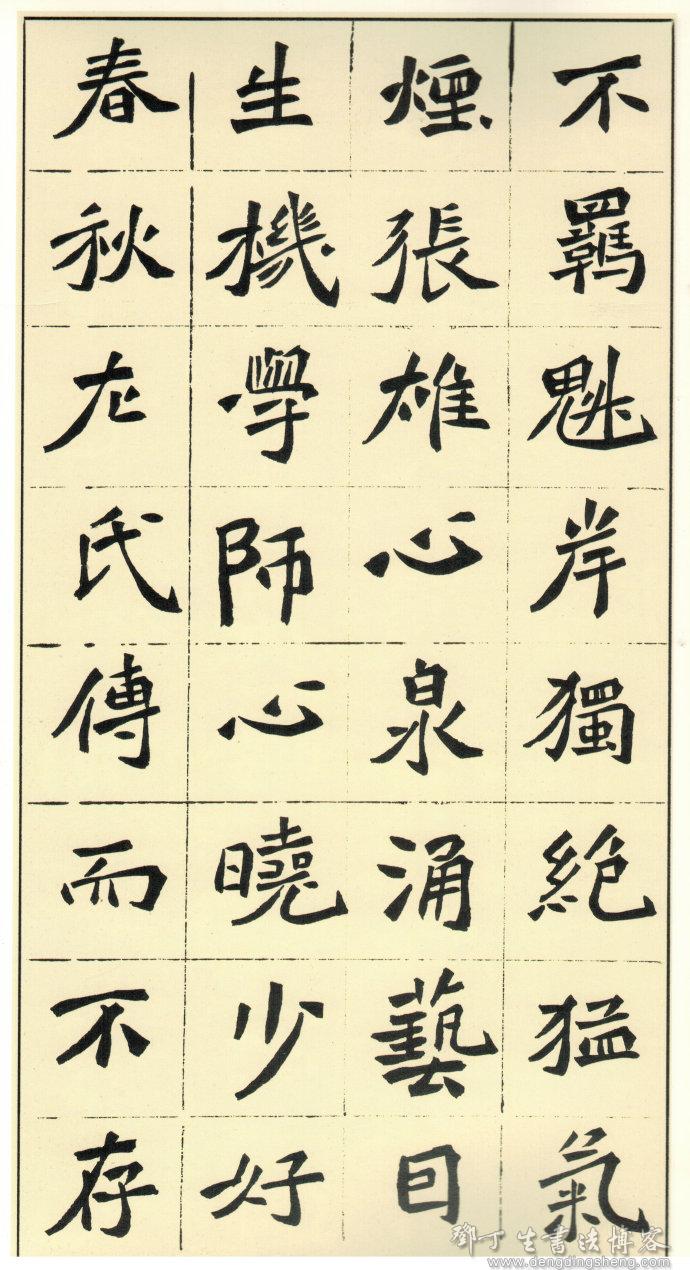 不羈魁岸獨絕猛氣
煙張雄心泉涌藝日
生機學師心曉少好
春秋左氏傳而不存
鄧丁生書法博客
www.dengdingsheng.com